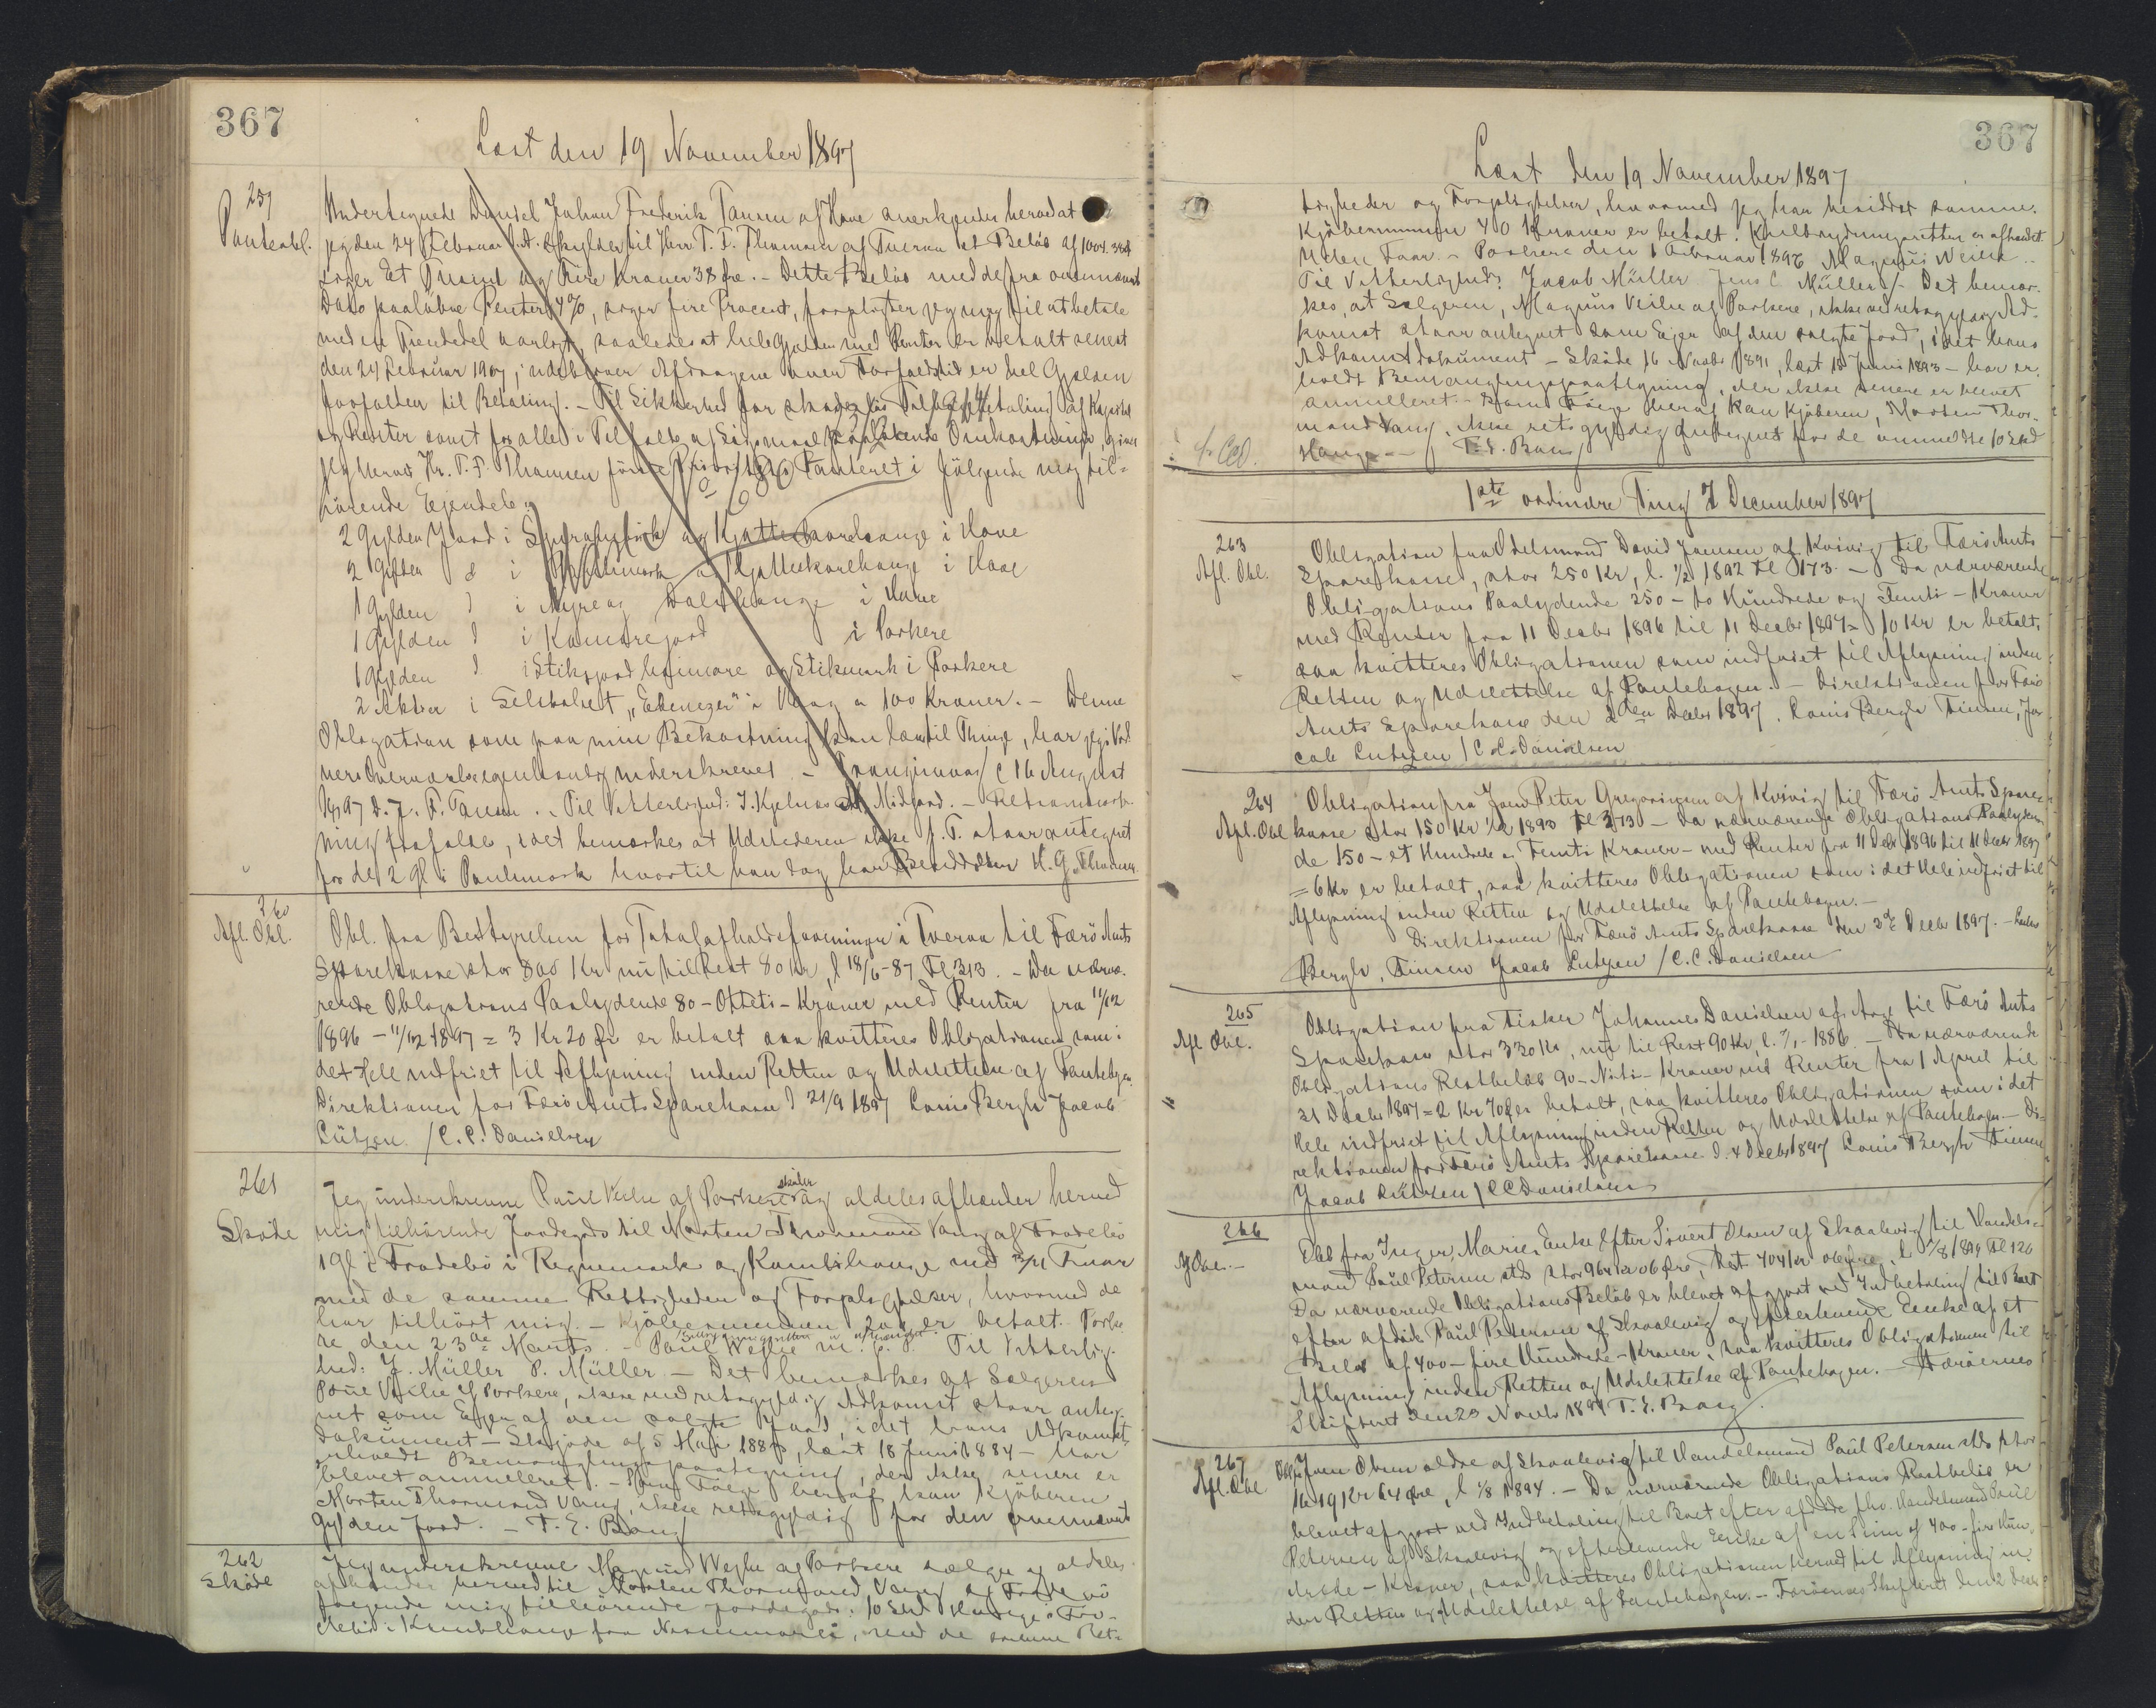 367
Læst den 19 November 1897
259
Panteobl.
Undertegnede Daniel Johan Frederik Tausen af Hove anerkjender herved at
jeg den 24 Februar d. A. skylder til Herr T. F. Thomsen af Tveraa et Beløb af 1004.38
siger Et Tusind og Fire Kroner 38 Øre. - Dette Beløb med de fra ovennævnte
Dato paaløbne Renter 4%, siger fire Procent, forpligter jeg mig til at betale
med en Tiendedel aarligt, saaledes at hele Gjælden med Renter er betalt senest
den 24 Februar 1907; udebliver Afdragene over Forfaldstid er hel Gjælden
forfalden til Betaling. - Til Sikkerhed for skadesløs Tilbagebetaling af Kapital
og Renter samt for alle i Tilfælde af Søgsmaal paaløbende Omkostninger, giver
jeg herved Hr. T. F. Thomsen første Prioritets Panteret i følgende mig til-
hørende Ejendele:
2 Gylden Jord i og Kjatterkarehauge i Hove
2 Gylden d i og Kjatterkarehauge i Hove
1 Gylden d i Myre og hauge i Hove
1 Gylden d i jord i Porkere
1 Gylden d i Stiksjord og Stikmark i Porkere
2 Aktier i Selskabet "Ebenezer" i Vaag a 100 Kroner. - Denne
Obligation som paa min Bekostning kan læses til Thinge, har jeg i Vid-
ners Overværelse egenhændig underskrevet - Trangisvaag d 16 August
1897 D. J. F. Tausen. - Til Vitterlighed: J. Kjølnes Midjord. -
ning idet bemærkes at Udstederen ikke p. T. staar antegnet
for de 2 Gl i hvortil han dog har H. G. Thomsen
260
Afl. Obl.
Obl. fra Bestyrelsen for Totalafholdsforeningen i Tveraa til Færø Amts
Sparekasse stor 800 Kr nu til Rest 80 Kr, l 18/6-87 Fl 313. - Da nærvæ-
rende Obligations Paalydende 80 - Otteti - Kroner med Renter fra 11/12
1896 - 11/12 1897 = 3 Kr 20 Ør er betalt saa kvitteres Obligationen som i
det Hele indfriet til Aflysning inden Retten og Udslettelse af Pantebogen.
Direktionen for Færø Amts Sparekasse d 21/9 1897 Louis Bergh Jacob
Lützen /C. C. Danielsen
261
Skøde
Jeg underskrevne Poul Vejlie af Porkere skøder og aldeles afhænder herved
mig tilhørende Jordegods til Morten Thormand Vang af Frodebø
1 Gl i Frodebø i Regnemark og Kambshauge med Faar
med de samme Rettigheder og Forpligtelser, hvormed de
har tilhørt mig. - Kjøbesummen er betalt. Porke
re den 23de Marts - Poul Wejlie m. f. P. Til Vitterlig-
hed: J. Müller P. Müller - Det bemærkes at Sælgeren
Poul Vejlie af Porkere, ikke med retsgyldig Adkomst staar anteg-
net som Ejer af den solgte Jord, idet hans Adkomst-
dokument - Skjøde af 5 Mai 1883, læst 18 Juni 1884 - har
erholdt Bemanglingspaategning, der ikke senere er
blevet annulleret. - Som Følge heraf kan Kjøberen
Morten Thormand Vang, ikke retsgyldig for den ovennævnte
Gylden Jord. - T. E. Bang
262
Skøde
Jeg underskrevne Magnus Wejlie af Porkere sælger og aldeles
afhænder herved til Morten Thormand Vang af Frodebø
følgende mig tilhørende Jordegods: 10 Skd Hauge i Fro-
debø i Kambhauge fra, med de samme Ret-
367
Læst den 19 November 1897
tigheder og Forpligtelser, hvormed jeg har besiddet samme.
Kjøbesummen 40 Kroner er betalt. Indløsningsretten er afhændet.
Uden Faar. - Porkere den 1 Februar 1896 Magnus Weilie. -
Til Vitterlighed: Jacob Müller Jens C Müller /- Det bemær-
kes, at Sælgeren, Magnus Veilie af Porkere, ikke med retsgyldig Ad-
komst staar antegnet som Ejer af den solgte Jord, idet hans
Adkomstdokument - Skøde 16 Novbr 1891, læst 15 Juni 1893 - har er-
holdt Bemanglingspaategning, der ikke senere er blevet
annulleret. - Som Følge heraf kan Kjøberen, Morten Thor-
mand Vang, ikke retsgyldig antegnet for de anmeldte 10 Skd
Hauge. - / T. E. Bang
1ste ordinære Ting 7 December 1897
263
Afl. Obl.
Obligation fra Odelsmand David Joensen af Kvivig til Færø Amts
Sparekasse, stor 250 Kr, l. 1/2 1892 Fl 173. - Da nærværende
Obligations Paalydende 250 - to Hundrede og Femti - Kroner
med Renter fra 11 Decbr 1896 til 11 Decbr 1897 = 10 Kr er betalt,
saa kvitteres Obligationen som indfriet til Aflysning inden
Retten og Udslettelse af Pantebogen. - Direktionen for Færø
Amts Sparekasse den 2den Decbr 1897. Louis Bergh Finsen, Ja-
cob Lützen / C. C. Danielsen
264
Afl. Obl
Obligation fra Joen Peter Gregorisen af Kvivig til Færø Amts Spare-
kasse stor 150 Kr 1/2 1893 Fl 313 - Da nærværende Obligations Paalyden-
de 150 - et Hundrede og Femti Kroner - med Renter fra 11 Decbr 1896 til 11 Decbr 1897
= 6 Kr er betalt, saa kvitteres Obligationen som i det Hele indfriet til
Aflysning inden Retten og Udslettelse af Pantebogen. -
Direktionen for Færø Amts Sparekasse den 2de Decbr 1897. - Louis
Bergh, Finsen Jacob Lützen / C. C. Danielsen
265
Afl Obl.
Obligation fra Fisker Johannes Danielsen af til Færø Amts
Sparekasse stor 330 Kr, nu til Rest 90 Kr, l. - 1886. - Da nærværende
Obligations Restbeløb 90 - Niti - Kroner med Renter fra 1 April til
31 Decbr 1897 = 2 Kr 70 Ør er betalt, saa kvitteres Obligationen som i det
Hele indfriet til Aflysning inden Retten og Udslettelse af Pantebogen. - Di-
rektionen for Færø Amts Sparekasse d. 4 Decbr 1897 Louis Bergh Finsen
Jacob Lützen / C C Danielsen
266
Obl fra Inger Marie, Enke efter Sivert Olsen af Skaalevig til Handels-
mand Poul Petersen stds stor 964 Kr 06 Øre, Rest 404 Kr, l 1/8 1894 Fl 126
Da nærværende Obligations Beløb er blevet afgjort ved Indbetaling til Boet
efter afdøde Poul Petersen af Skaalevig og efterlevende Encke af et
Beløb af 400 - fire Hundrede - Kroner, saa kvitteres Obligationen til
Aflysning inden Retten og Udslettelse af Pantebogen. - Færøernes
Skifteret den 23 Novbr 1897 T. E. Bang
267
Afl. Obl
Obl fra Joen Olsen ældre af Skaalevig til Handelsmand Poul Petersen stds stor
Kr 64 Øre, l 1/8 1894. - Da nærværende Obligations Restbeløb er
blevet afgjort ved Indbetaling til Boet efter afdøde fhv. Handelsmand Poul
Petersen af Skaalevig og efterlevende Encke af en Sum af 400 - fire Hun-
drede - Kroner, saa kvitteres Obligationen herved til Aflysning in-
den Retten og Udslettelse af Pantebogen. - Færøernes Skifteret den 2 Decbr